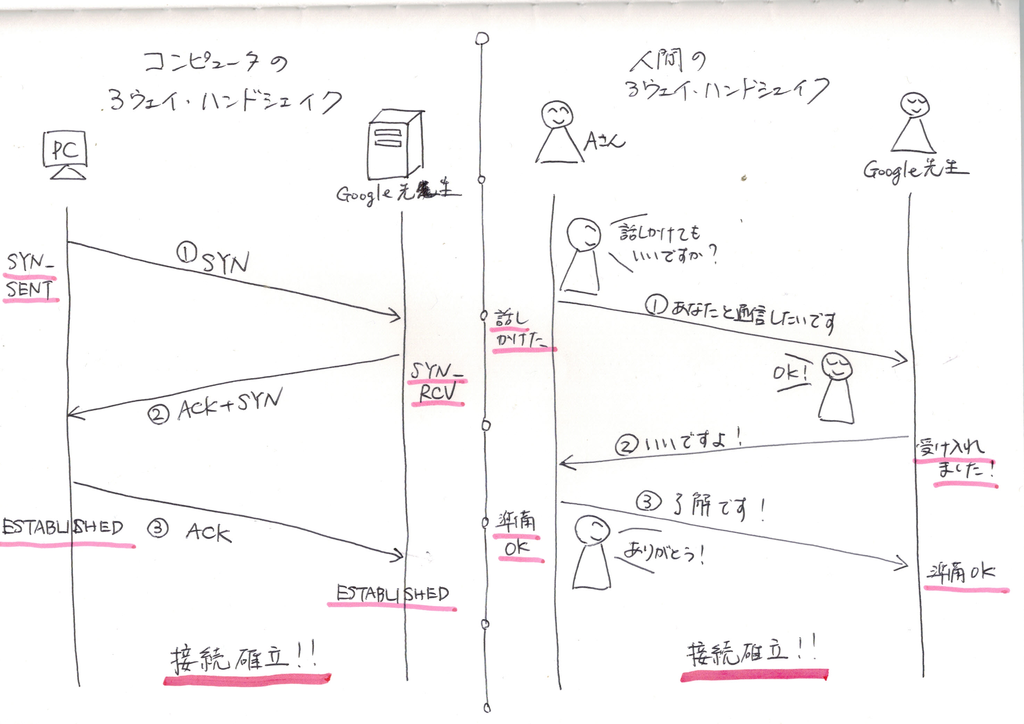 コンピュータの
3ウェイ・ハンドシェイク
PC
Google先生
SYN_
SENT
①SYN
SYN_
RCV
② ACK+SYN
ESTABLISHED
③ ACK
ESTABLISHED
接続確立!!
人間の
3ウェイ・ハンドシェイク
Aさん
Google先生
話しかけても
いいですか?
話し
かけた
①あなたと通信したいです
OK!
②いいですよ!
受け入れ
ました!
③了解です!
準備
OK
ありがとう!
準備OK
接続確立!!